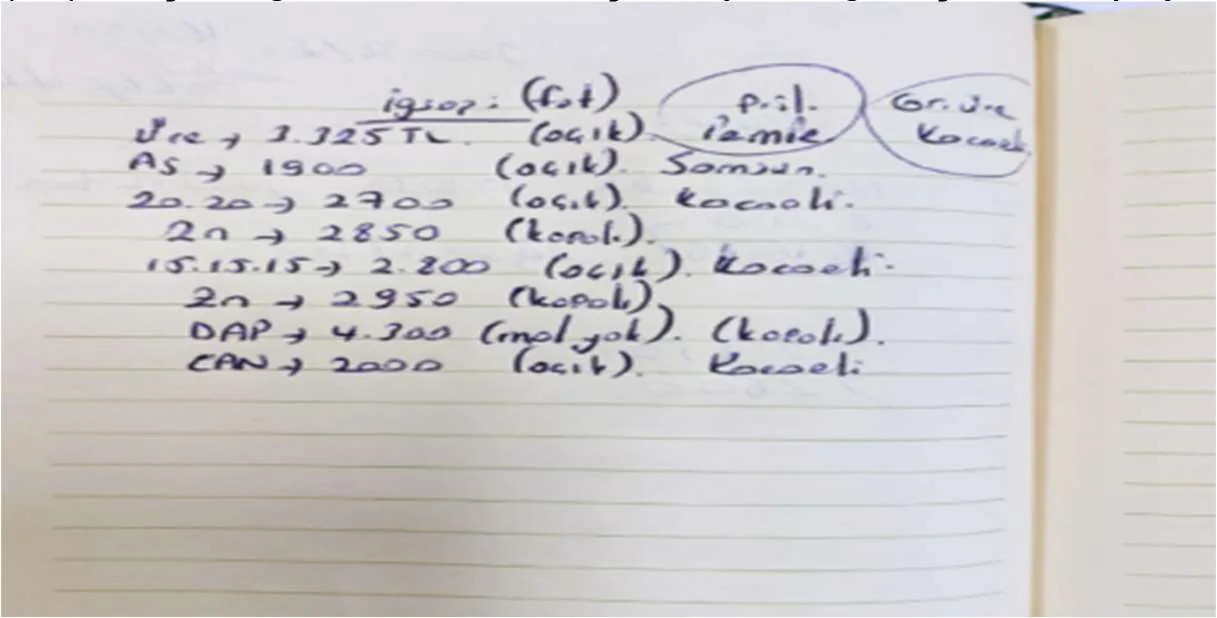 igsaz: (fot) Pril. Gr. üre
Üre → 3.325 TL. (açık). Kocaeli
AS → 1900 (açık). Samsun.
20.20 → 2700 (açık). Kocaeli.
Zn → 2850 (kapalı).
15.15.15 → 2.800 (açık). Kocaeli.
Zn → 2950 (kapalı).
DAP → 4.300 (mal yok). (kapalı).
CAN → 2000 (açık). Kocaeli